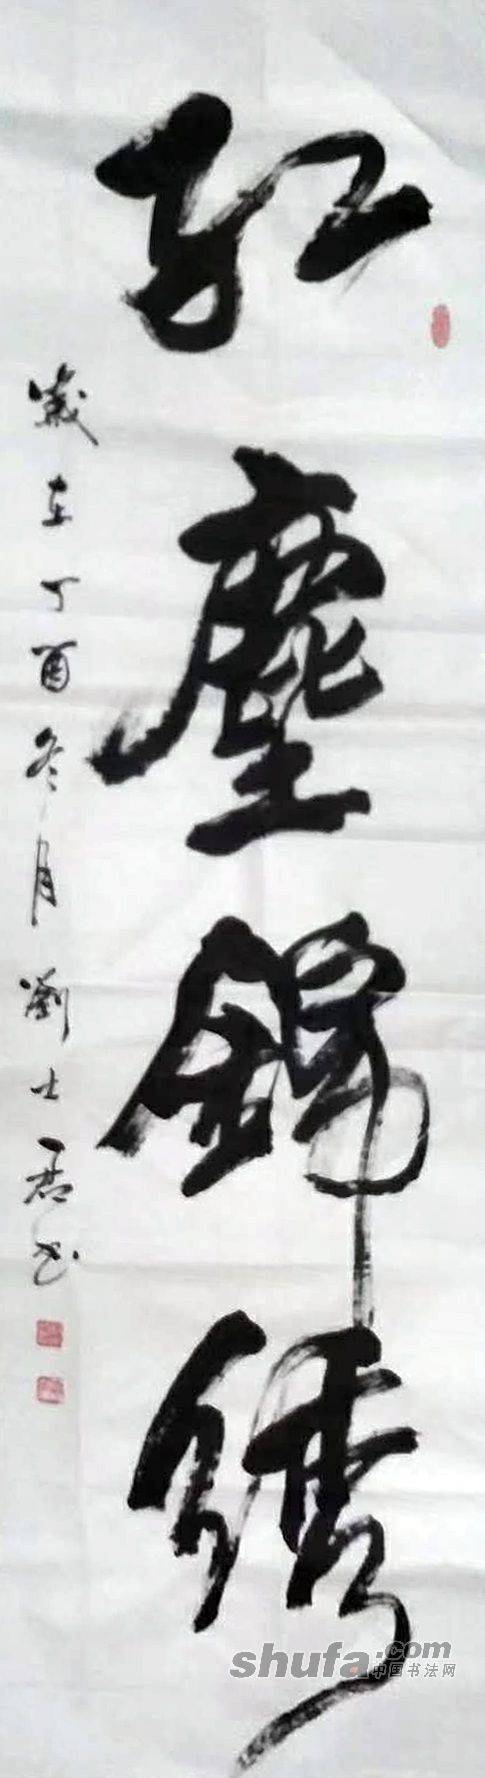 红塵錦綉
歲在丁酉冬月劉士君书
shufa.com
中国书法网